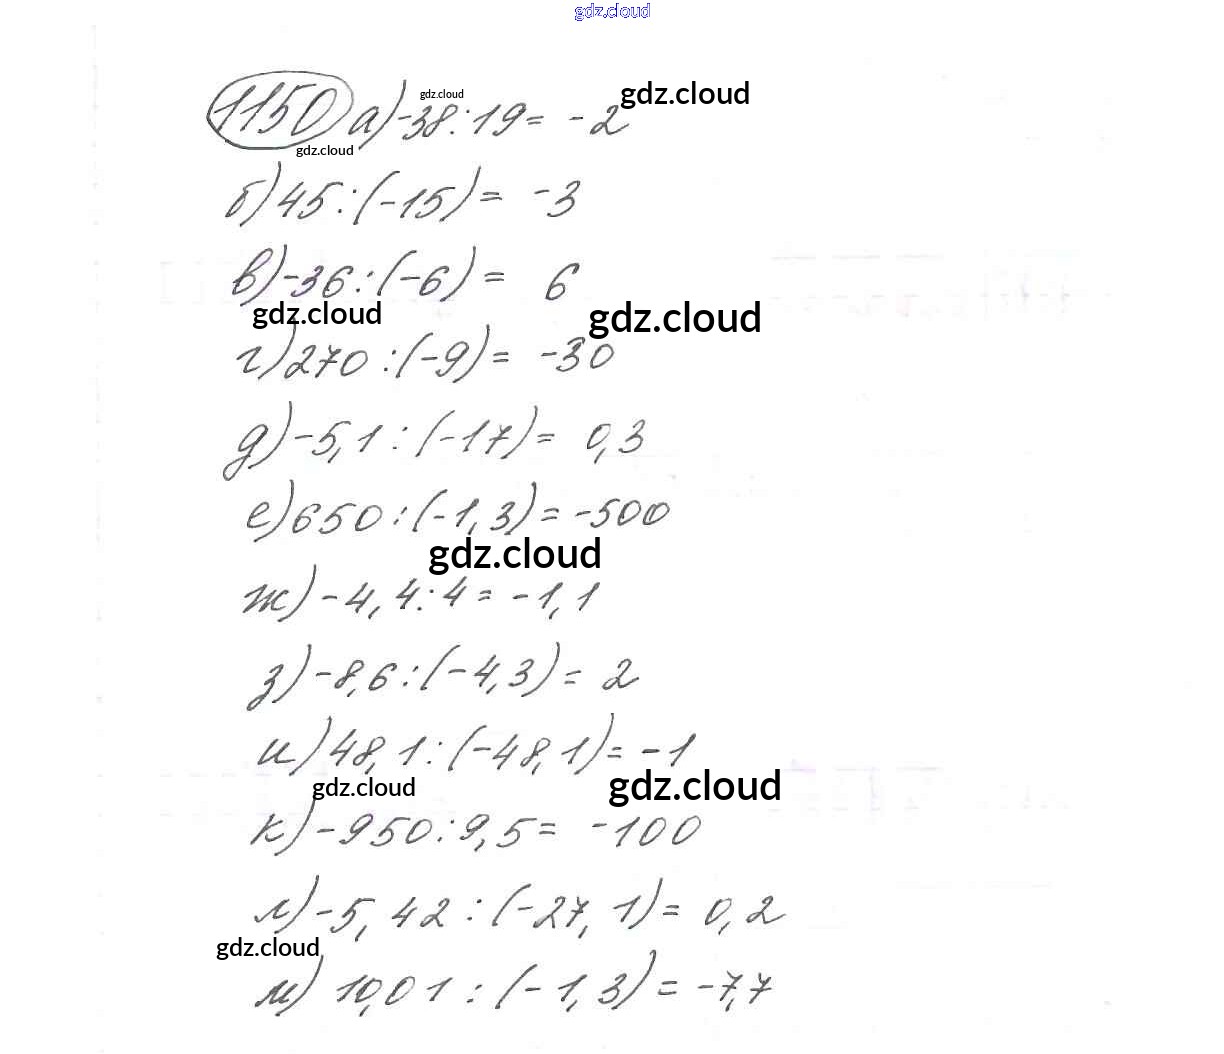 gdz.cloud
1150 а) -38 : 19 = -2
gdz.cloud
gdz.cloud
gdz.cloud
б) 45 : (-15) = -3
в) -36 : (-6) = 6
gdz.cloud
gdz.cloud
г) 270 : (-9) = -30
д) -5,1 : (-17) = 0,3
е) 650 : (-1,3) = -500
gdz.cloud
ж) -4,4 : 4 = -1,1
з) -8,6 : (-4,3) = 2
и) 48,1 : (-48,1) = -1
gdz.cloud
gdz.cloud
к) -950 : 9,5 = -100
л) -5,42 : (-27,1) = 0,2
gdz.cloud
м) 10,01 : (-1,3) = -7,7